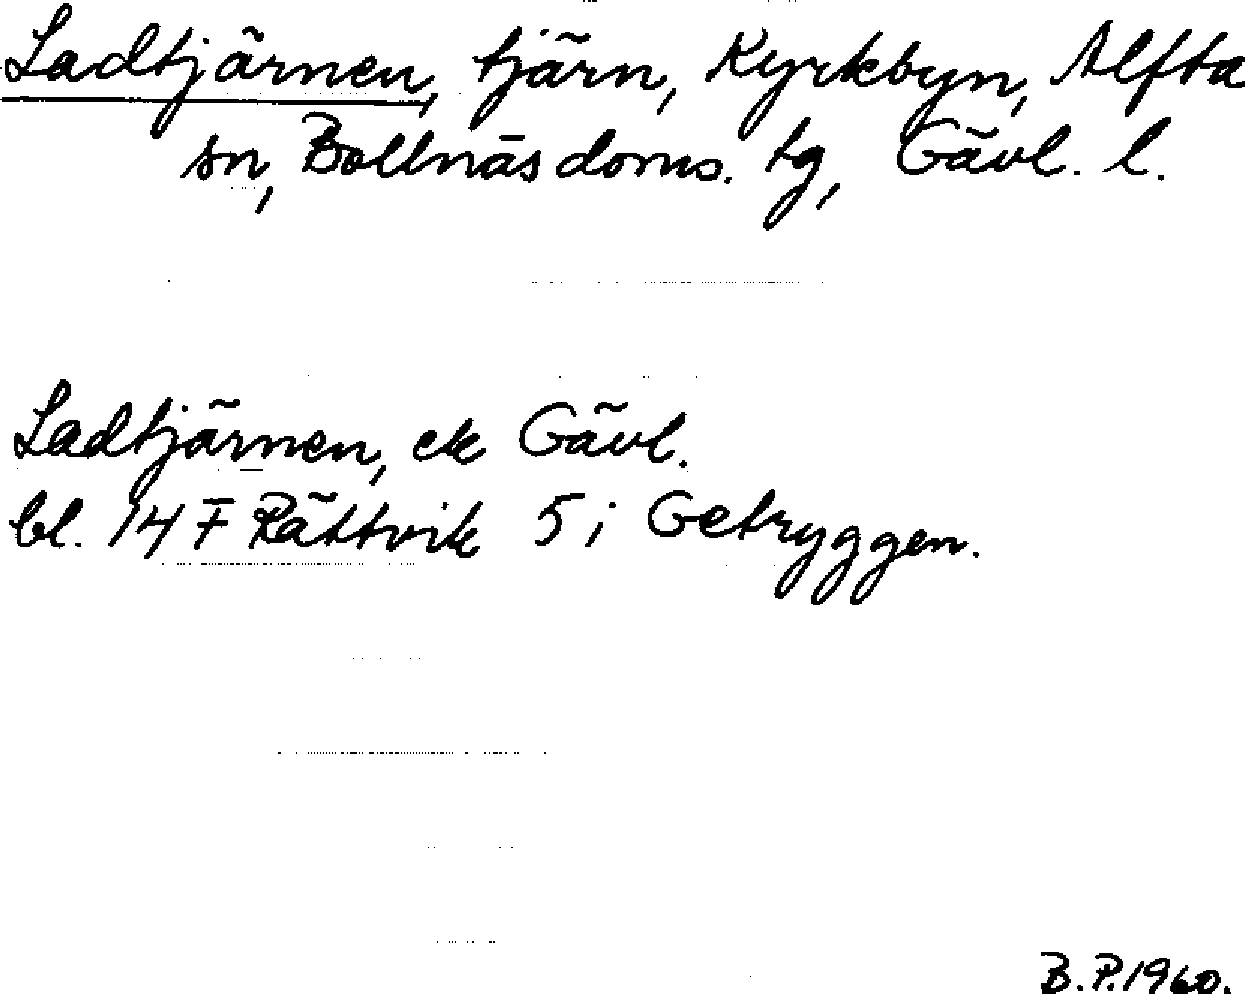 Ladtjärnen, tjärn, Kyrkbyn, Alfta
sn, Bollnäs doms. tg, Gävl. l.
Ladtjärnen, ek Gävl.
bl. 14 F Rättvik 5 i Getryggen.
B.P. 1960.